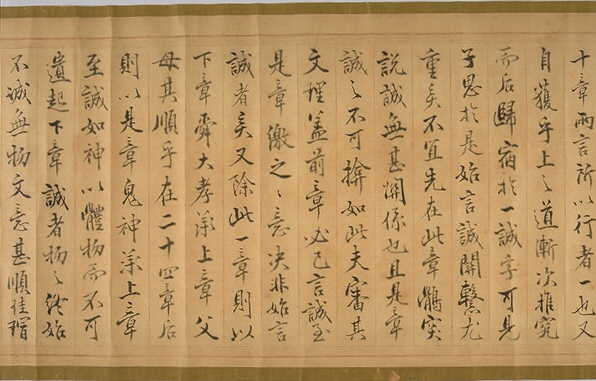 十章兩言所以行者一也又
自獲乎上之道漸次推究
而后歸宿於一誠字可見
子思於是始言誠關繫尤
重矣不宜先在此章鶻突
說誠無甚關係也且是章
誠之不可揜如此夫審其
文理蓋前章必已言誠至
是章儆之之意決非始言
誠者矣又除此一章則以
下章舜大孝承上章父
母其順乎在二十四章后
則以是章鬼神承上章
至誠如神以體物而不可
遺起下章誠者物之終始
不誠無物文意甚順